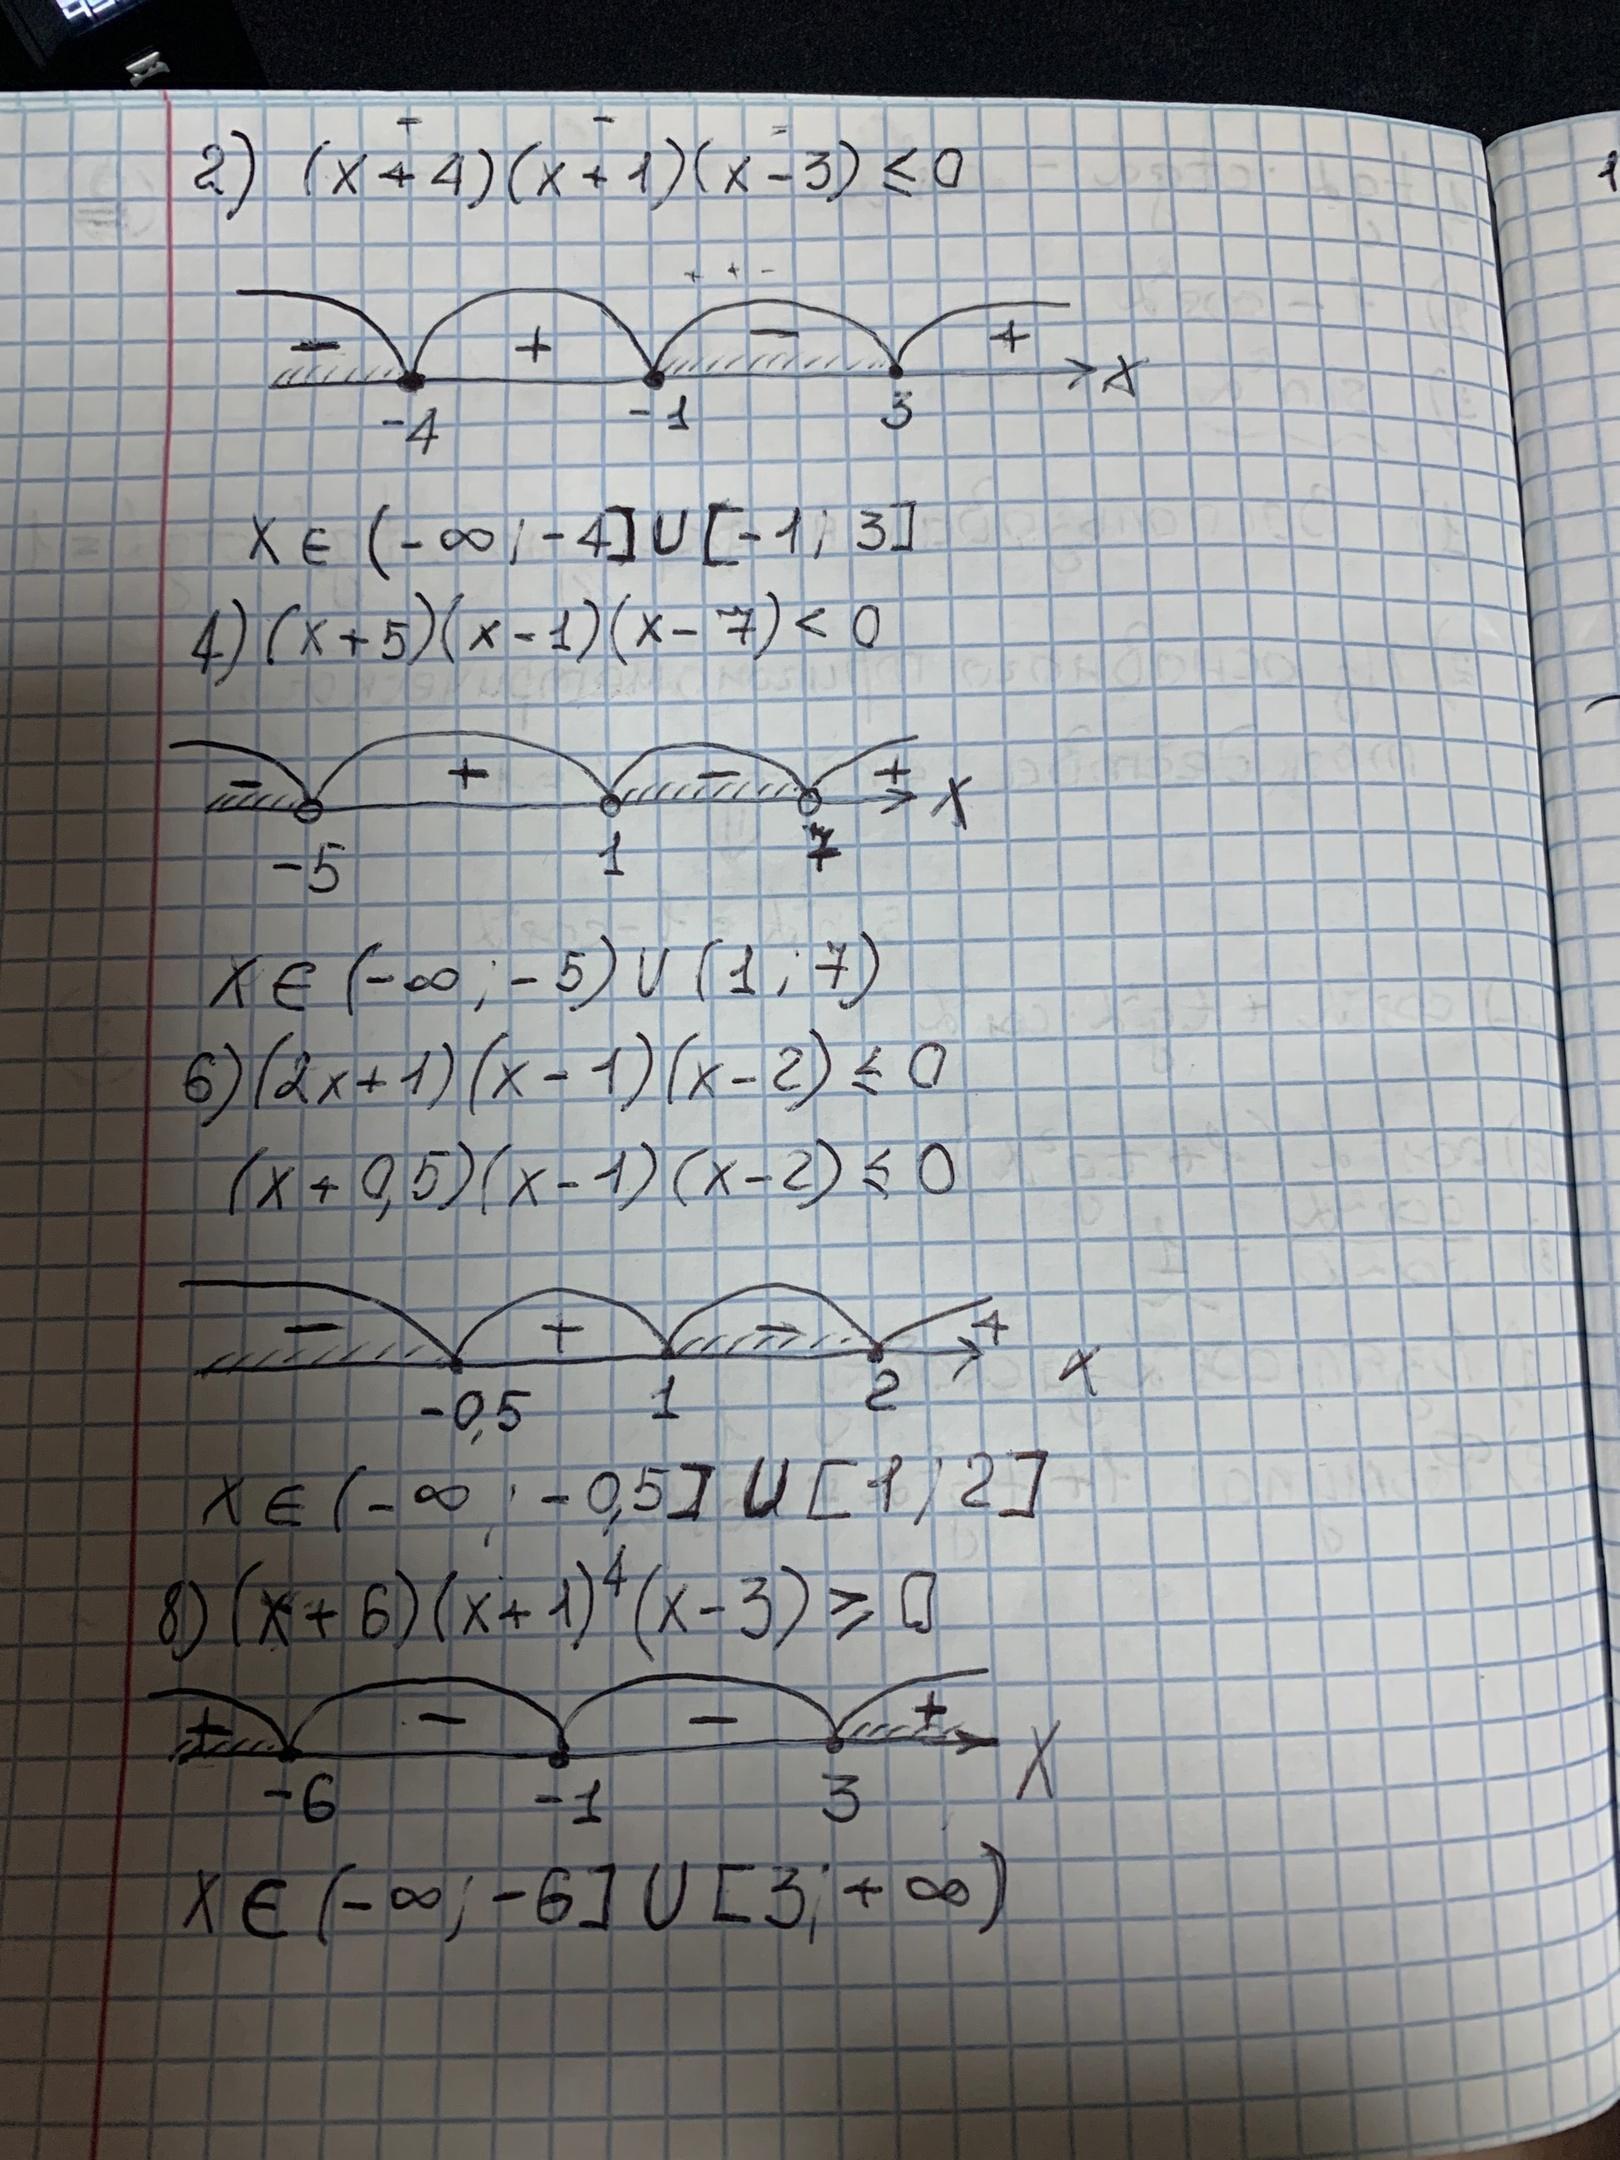 2) (x + 4)(x + 1)(x - 3) ≤ 0
- - -
+ + -
- + - +
-4 -1 3 x
x ∈ (-∞; -4] ∪ [-1; 3]
4) (x + 5)(x - 1)(x - 7) < 0
- + - +
-5 1 7 x
x ∈ (-∞; -5) ∪ (1; 7)
6) (2x + 1)(x - 1)(x - 2) ≤ 0
(x + 0,5)(x - 1)(x - 2) ≤ 0
- + - +
-0,5 1 2 x
x ∈ (-∞; -0,5] ∪ [1; 2]
8) (x + 6)(x + 1)⁴(x - 3) ≥ 0
+ - - +
-6 -1 3 x
x ∈ (-∞; -6] ∪ [3; +∞)